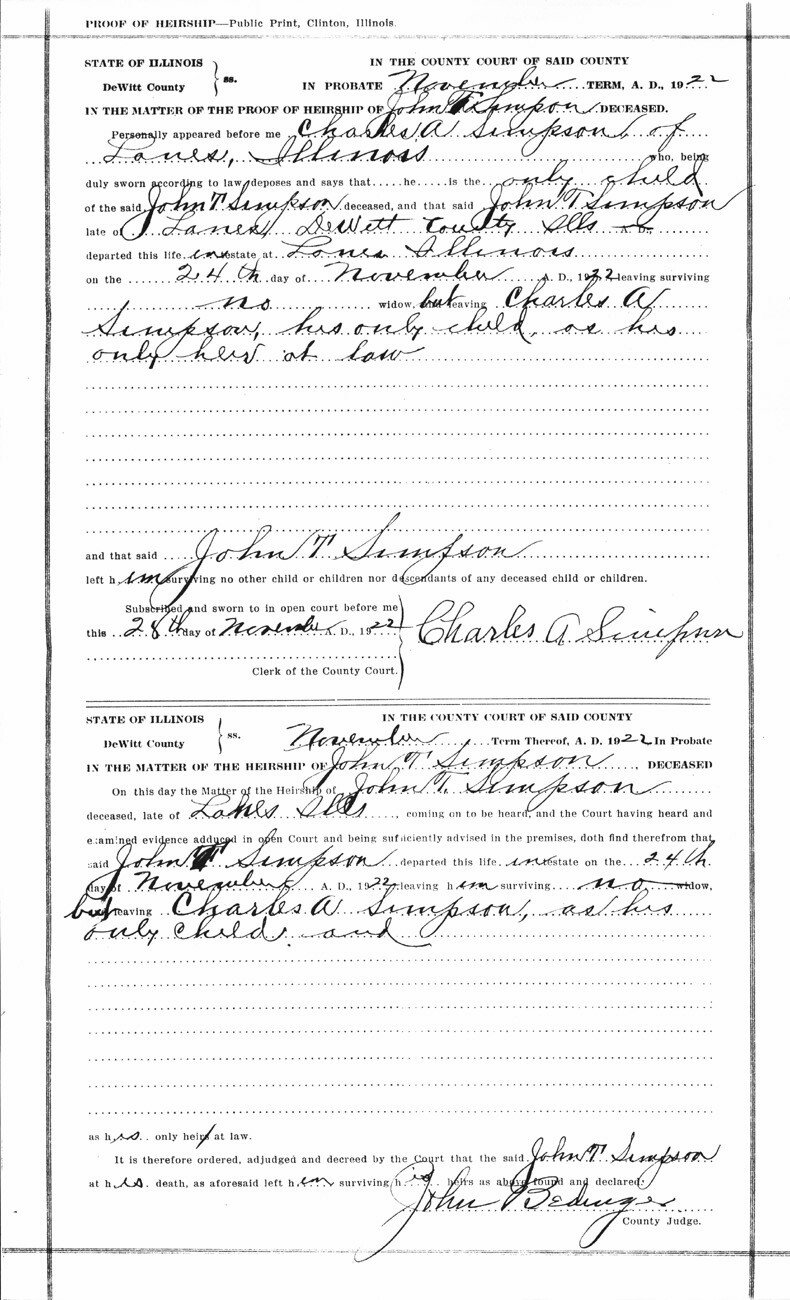 PROOF OF HEIRSHIP—Public Print, Clinton, Illinois.
STATE OF ILLINOIS } ss. IN THE COUNTY COURT OF SAID COUNTY
DeWitt County IN PROBATE November TERM, A. D., 1922
IN THE MATTER OF THE PROOF OF HEIRSHIP OF John T Simpson DECEASED.
Personally appeared before me Charles A Simpson, of
Lanes, Illinois who, being
duly sworn according to law, deposes and says that he is the only child
of the said John T Simpson deceased, and that said John T Simpson
late of Lanes, DeWitt County Ills
departed this life intestate at Lanes Illinois
on the 24th day of November A. D., 1922 leaving surviving
no widow, but leaving Charles A
Simpson, his only child, as his
only heir at law
and that said John T Simpson
left him surviving no other child or children nor descendants of any deceased child or children.
Subscribed and sworn to in open court before me
this 28th day of November A. D., 1922 Charles A Simpson
Clerk of the County Court.
STATE OF ILLINOIS } ss. IN THE COUNTY COURT OF SAID COUNTY
DeWitt County November Term Thereof, A. D. 1922 In Probate
IN THE MATTER OF THE HEIRSHIP OF John T Simpson, DECEASED
On this day the Matter of the Heirship of John T. Simpson
deceased, late of Lanes Ills, coming on to be heard, and the Court having heard and
examined evidence adduced in open Court and being sufficiently advised in the premises, doth find therefrom that
said John T Simpson departed this life intestate on the 24th
day of November A. D., 1922 leaving him surviving no widow,
but leaving Charles A Simpson, as his
only child, and
as his only heirs at law.
It is therefore ordered, adjudged and decreed by the Court that the said John T Simpson
at his death, as aforesaid left him surviving his heirs as above found and declared.
John Bedinger
County Judge.